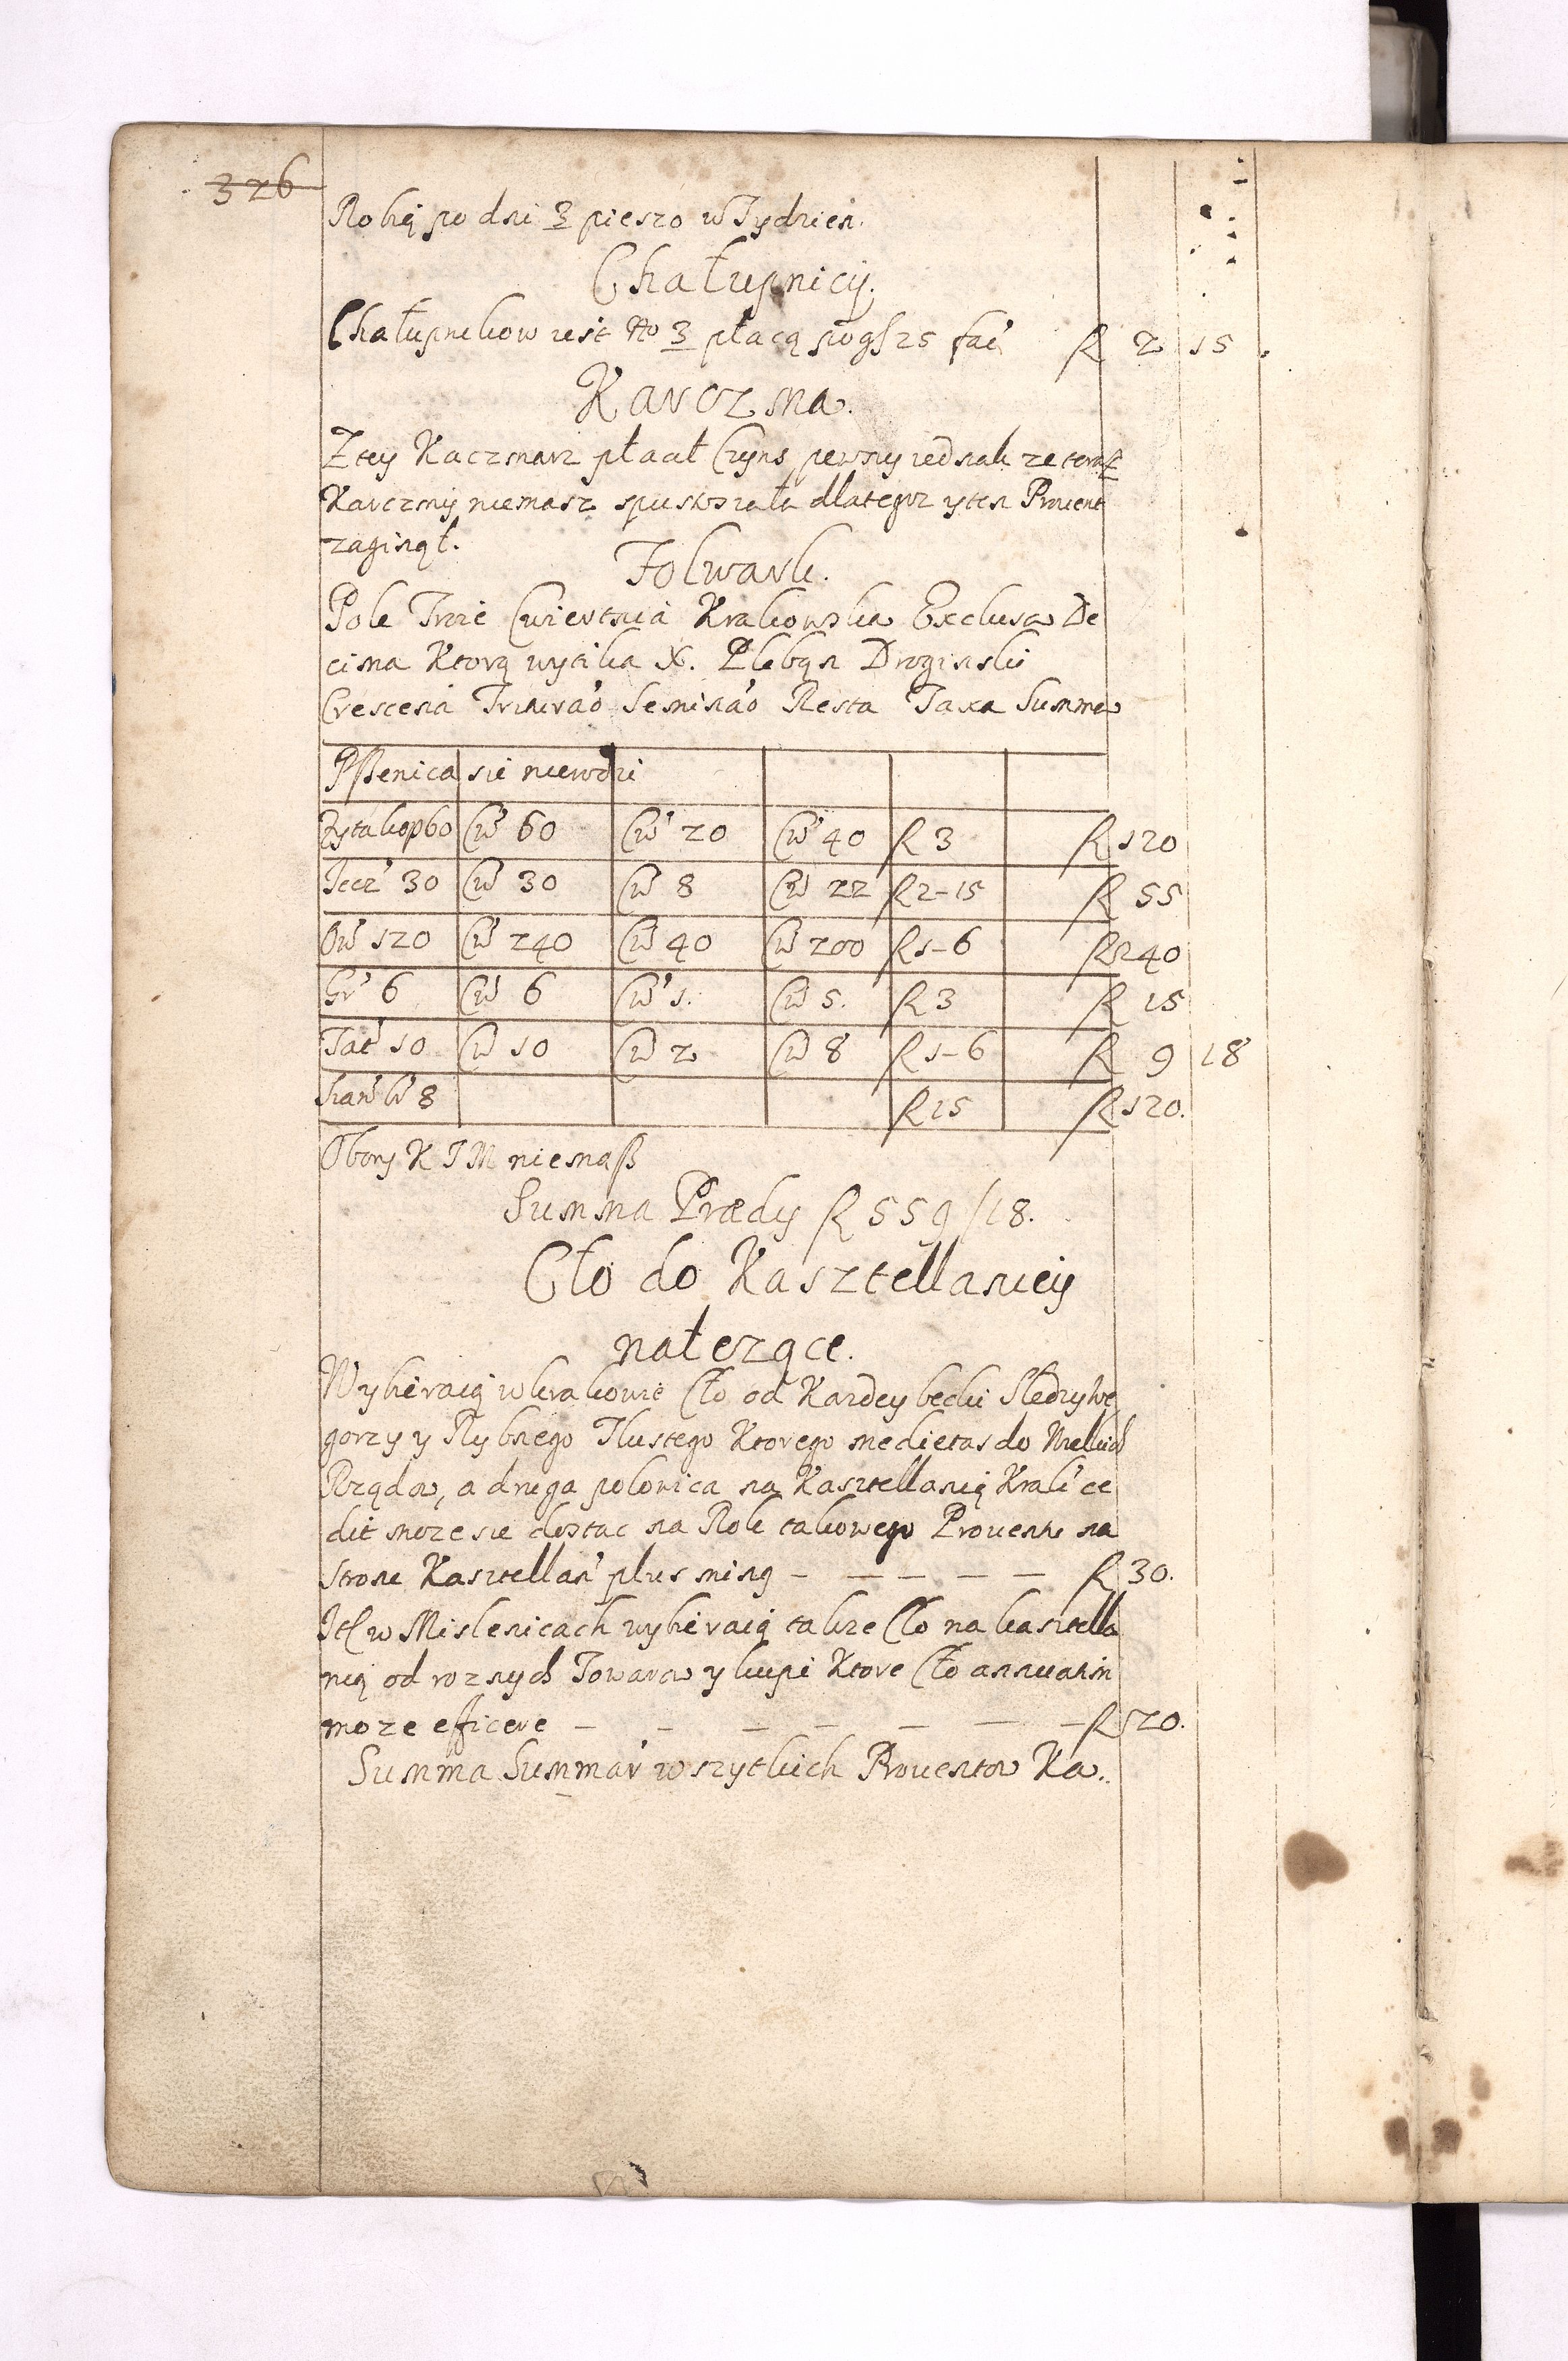 326
Robią po dni 3 pieszo w Tydzień.
Chałupnicy.
Chałupnikow iest No 3 płacą po gſ 25 fać ƒ 2 15
Karczma.
Z tey Kaczmarz płacał Czyns pewny iednak ze teraz
Karczmy niemasz spustoszała dlategoz y ten Provent
zaginął.
Folwark.
Pole Trzie Cwiertnia Krakowska Exclusa De
cima Ktorą wytika X. Plebąn Droginski
Crescená Tritura'o Semina'o Resta Taxa Summa
Pßenica sie niewodzi
Zyta kop 60 Cw' 60 Cw' 20 Cw' 40 ƒ 3 ƒ 120
Jecz' 30 Cw' 30 Cw' 8 Cw' 22 ƒ 2-15 ƒ 55
Ow' 120 Cw' 240 Cw' 40 Cw' 200 ƒ 1-6 ƒ 240
Gr' 6 Cw' 6 Cw' 1. Cw' 5. ƒ 3 ƒ 15
Tat' 10 Cw' 10 Cw' 2 Cw' 8 ƒ 1-6 ƒ 9 18
Sian' W' 8 ƒ 15 ƒ 120.
Obory K J M niemaß
Summa Prædy ƒ 559/18.
Cło do Kasztellaniey
nałezące.
Wybieraią w krakowie Cło od Kazdey beclki Sledzy We
gorzy y Rybnego Tlustego Ktorego medietas do Wielkich
Rządow, a druga polowica na Kasztellanią Krak' ce
dit moze sie dostac na Rok takowego Proventu na
strone Kasztellań' plus minꝯ – – – – – ƒ 30.
Itt w Mislenicach wybieraią takze Cło na kasztella
nią od roznych Towarow y kupi Ktore Cło annuatim
moze efficere – – – – – – – ƒ 120.
Summa Summar' wszytkich Proventow Ka..